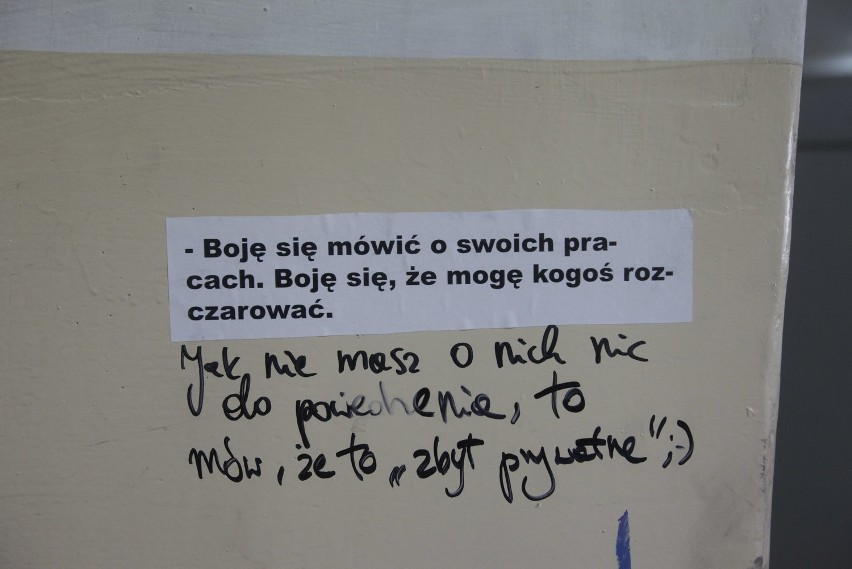 - Boję się mówić o swoich pra-
cach. Boję się, że mogę kogoś roz-
czarować.
Jak nie masz o nich nic
do powiedzenia, to
mów, że to „zbyt prywatne";-)